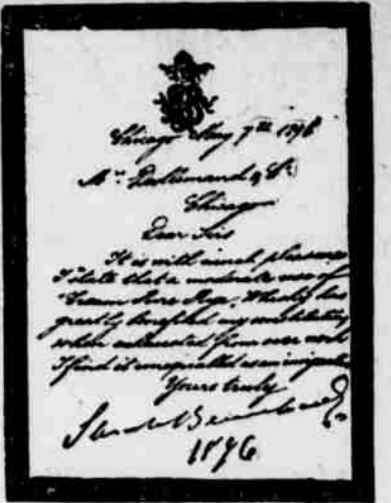 Chicago May 7th 1896
Mr. Dallemand & Co
Chicago
Dear Sirs
It is with much pleasure
I state that a moderate use of
"Cream Pure Rye" Whisky has
greatly benefited my constitution
when exhausted from over work
I find it unequalled as an invigorator
Yours truly
Sarah Bernhardt
1896